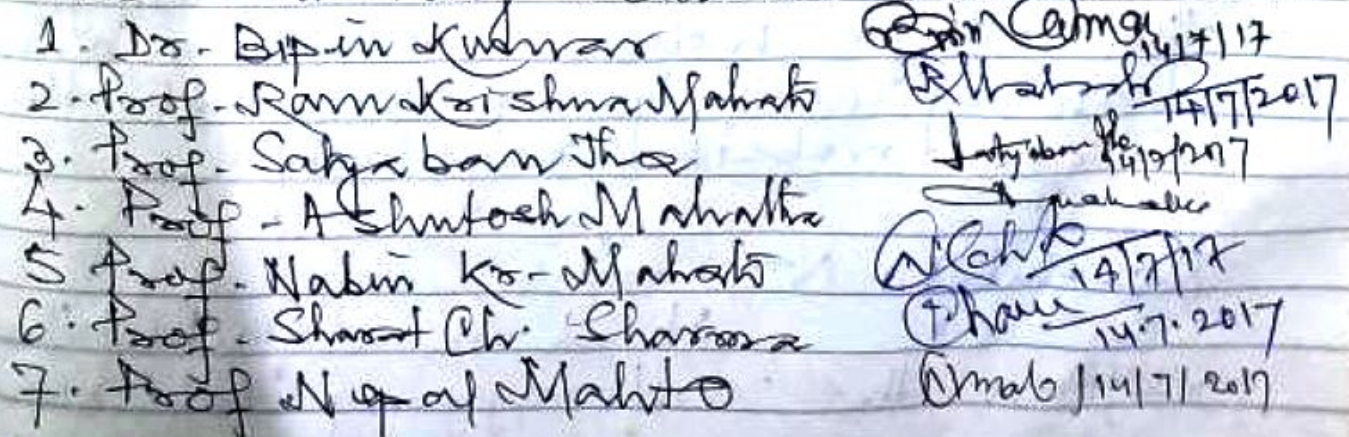 1. Dr. Bipin Kumar Bipin Kumar 14/7/17
2. Prof. Ram Krishna Mahato RMahato 14/7/2017
3. Prof. Satyaban Jha Satyaban Jha 14/7/2017
4. Prof. Ashutosh Mahatha
5 Prof. Nabin Kr. Mahato 14/7/17
6. Prof. Sharat Ch. Sharma 14.7.2017
7. Prof Mahto 14/7/2017